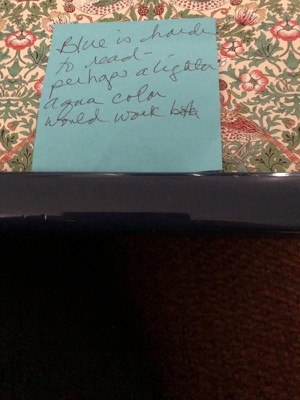 Blue is harder
to read-
perhaps a lighter
aqua color
would work